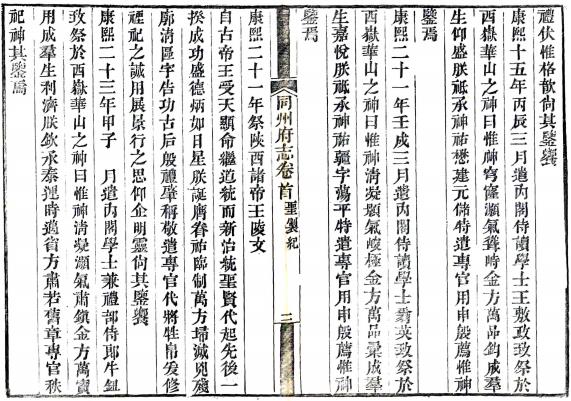 禮伏惟格歆尚其鑒饗
康熙十五年丙辰三月遣內閣侍讀學士王敷政致祭於
西嶽華山之神曰惟神穹窿灝氣聳峙金方萬品鈞成羣
生仰盛朕祗承神祐懋建元儲特遣專官用申殷薦惟神
鑒焉
康熙二十一年壬戌三月遣內閣侍讀學士英致祭於
西嶽華山之神曰惟神清凝顥氣峻極金方萬品彙成羣
生嘉悅朕祗承神祐疆宇蕩平特遣專官用申殷薦惟神
鑒焉
同州府志卷首 聖製紀 三
康熙二十一年祭陝西諸帝王陵文
自古帝王受天顯命繼道統而新治統聖賢代起先後一
揆成功盛德炳如日星朕誕膺眷祐臨制萬方埽滅兇殘
廓清區宇告功古后殷禮肇稱敬遣專官代將牲帛爰修
禋祀之誠用展景行之思仰企明靈尚其鑒饗
康熙二十三年甲子 月遣內閣學士兼禮部侍郎牛鈕
致祭於西嶽華山之神曰惟神清凝灝氣肅鎮金方萬寶
用成羣生利濟朕欽承泰運時邁省方肅若舊章專官秩
祀神其鑒焉